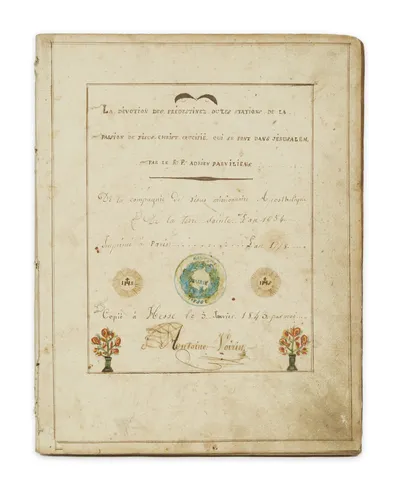 LA DÉVOTION DES PRÉDESTINEZ OU LES STATIONS DE LA
PASSION DE JÉSUS-CHRIST CRUCIFIÉ, QUI SE FONT DANS JÉRUSALEM,
PAR LE R. P. ADRIEN PARVILIERS
De la compagnie de Jésus missionnaire Apostholique
de la Terre Sainte. L'an 1654.
Imprimé à Paris L'an
Copié à Hesse le 5 Janvier 1843 par moi
Antoine Voirin